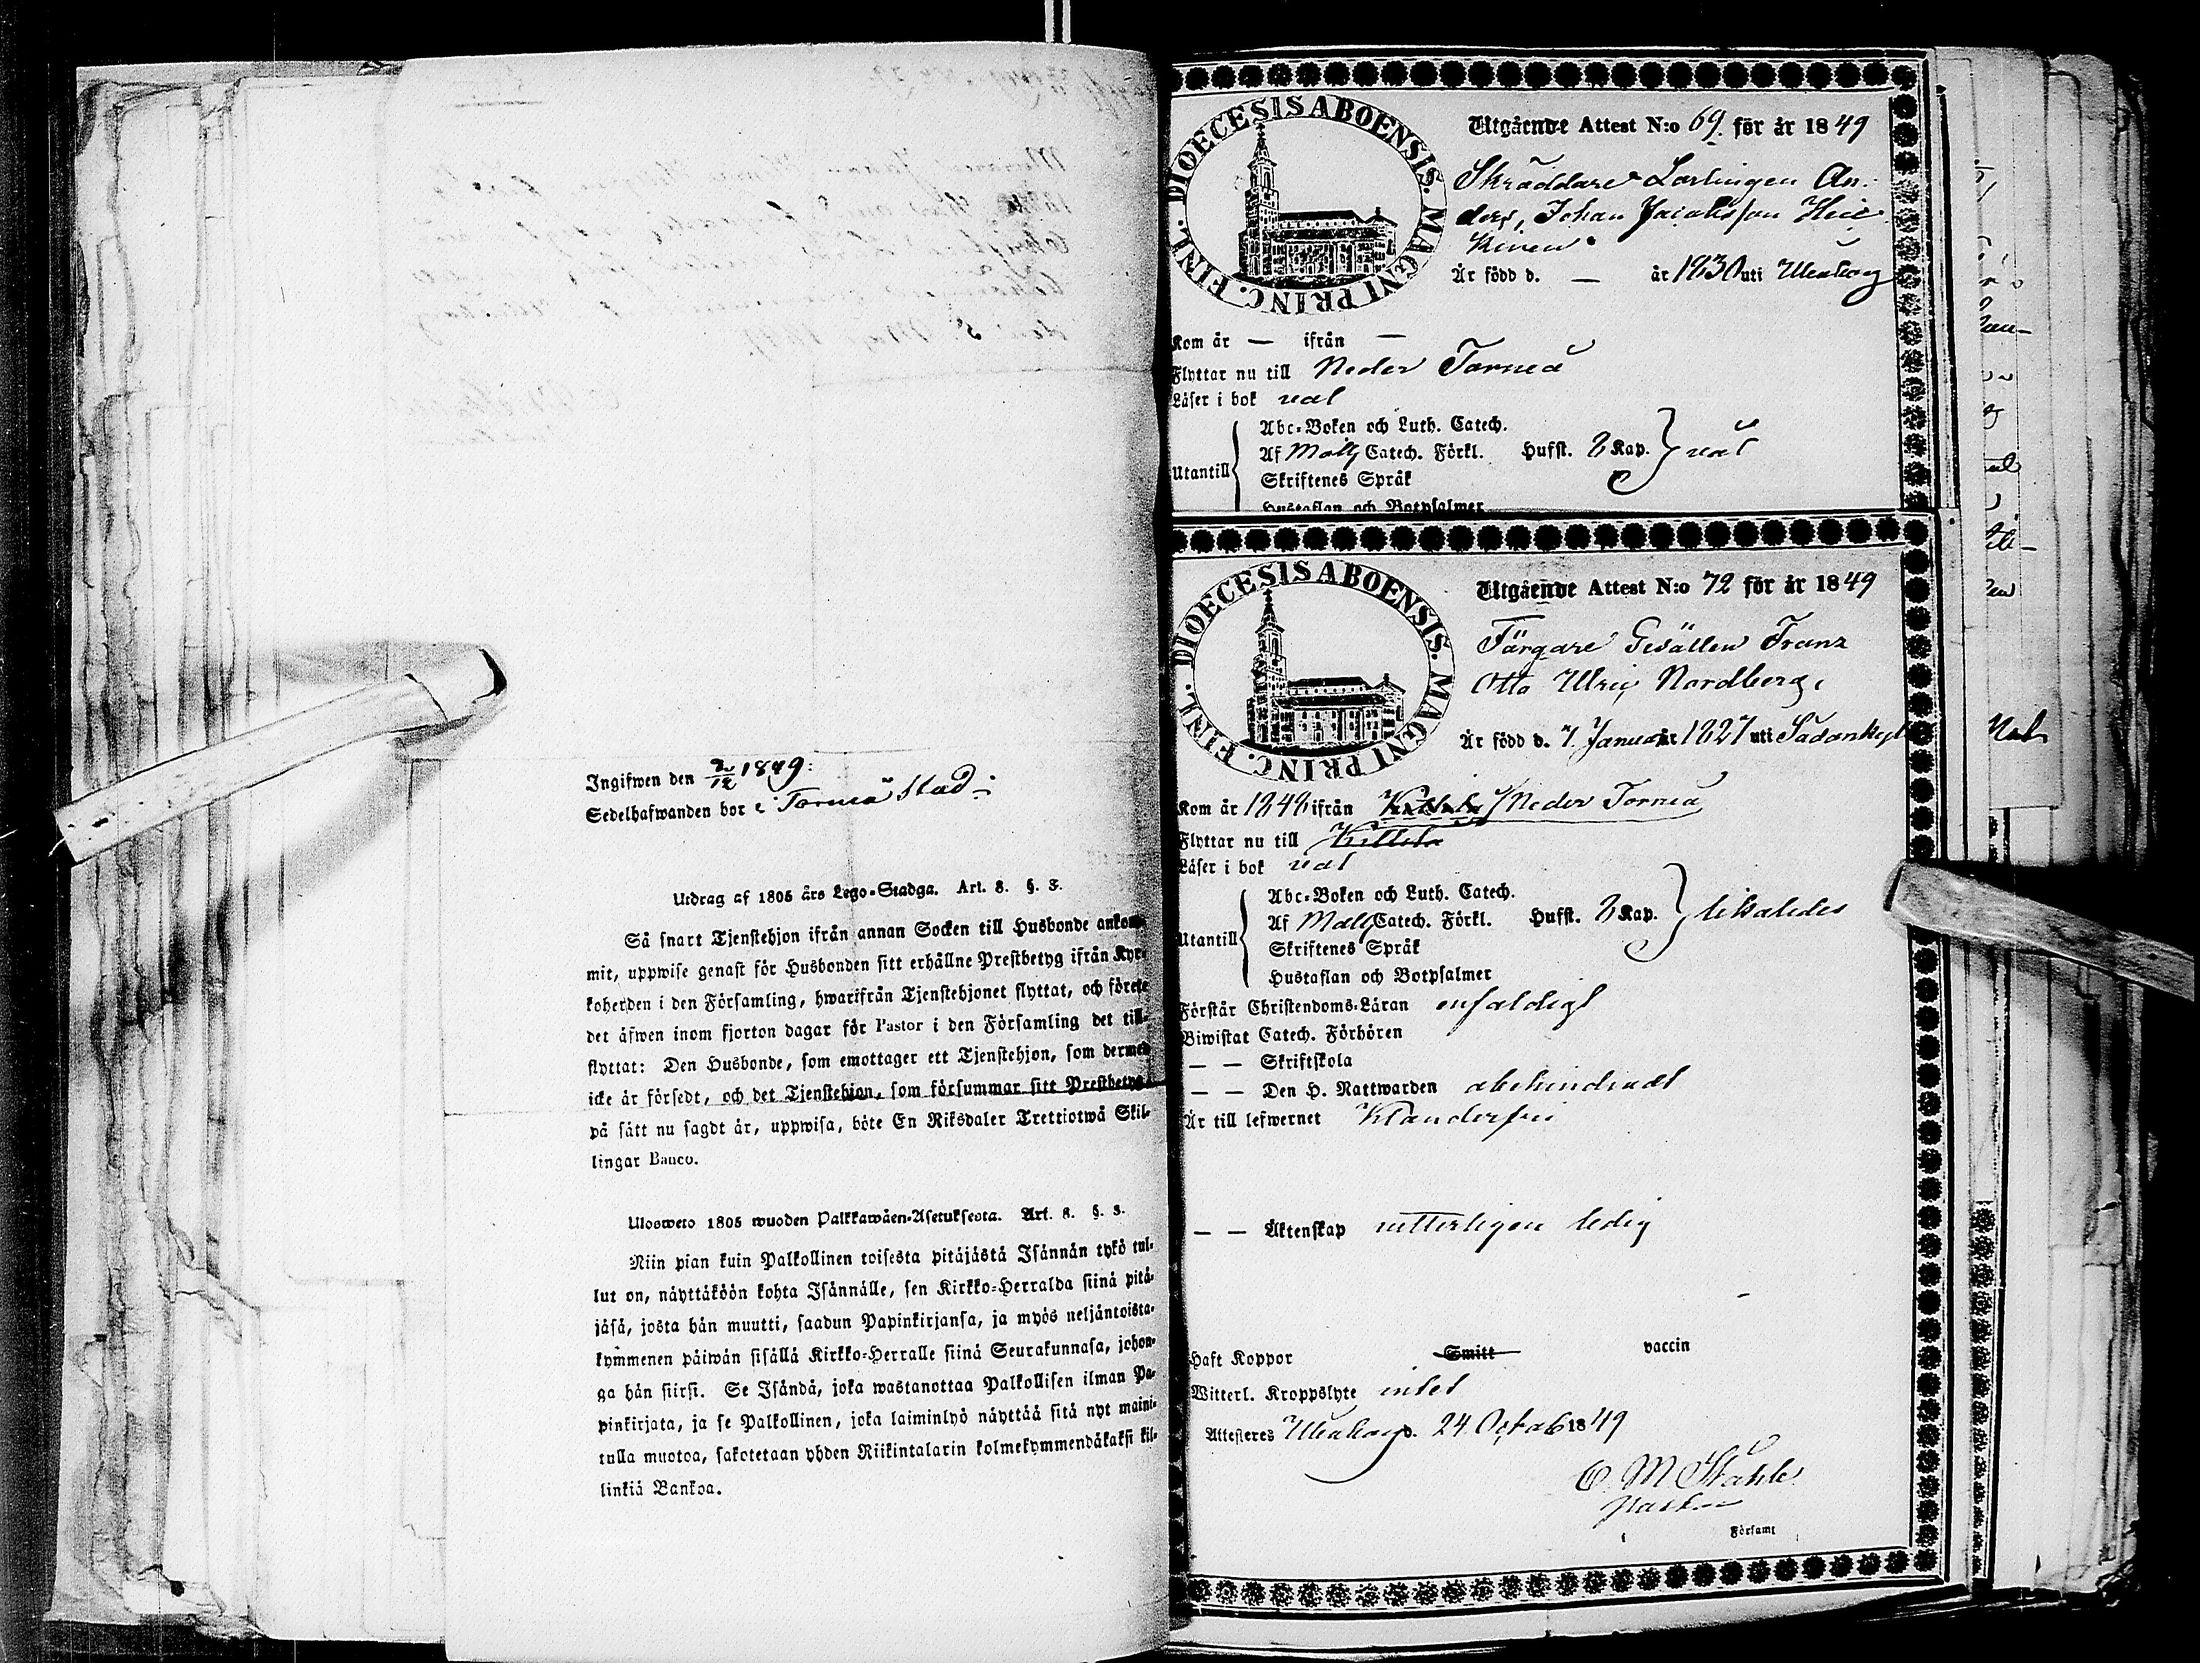 Ingifwen den 2/12 1849:
Sedelhafwanden bor i Torneå Stad
Utdrag af 1805 års Lego-Stadga. Art. 8. §. 3.
Så snart Tjenstehjon ifrån annan Socken till Husbonde ankom-
mit, uppwise genast för Husbonden sitt erhållne Prestbetyg ifrån Kyr-
koherden i den Församling, hwarifrån Tjenstehjonet flyttat, och förete
det äfwen inom fjorton dagar för Pastor i den Församling det till-
flyttat: Den Husbonde, som emottager ett Tjenstehjon, som dermed
icke är försedt, och det Tjenstehjon, som försummar sitt Prestbetyg,
på sätt nu sagdt är, uppwisa, böte En Riksdaler Trettiotwå Skil-
lingar Banco.
Ulosweto 1805 wuoden Palkkawäen-Asetuksesta. Art. 8. §. 3.
Niin pian kuin Palkollinen toisesta pitäjästä Isännän tykö tul-
lut on, näyttäköön kohta Isännälle, sen Kirkko-Herralda siinä pitä-
jäsä, josta hän muutti, saadun Papinkirjansa, ja myös neljäntoista-
kymmenen päiwän sisällä Kirkko-Herralle siinä Seurakunnasa, johon-
ga hän siirsi. Se Isändä, joka wastanottaa Palkollisen ilman Pa-
pinkirjata, ja se Palkollinen, joka laiminlyö näyttää sitä nyt maini-
tulla muotoa, sakotetaan yhden Riikintalarin kolmekymmendäkaksi kil-
linkiä Bankoa.
DIOECESIS ABOENSIS. MAGNI PRINC. FINL.
Utgående Attest N:o 69 för år 1849
Skräddare Lärlingen An-
ders, Johan Jacobsson Heic
kinen
Är född d. — år 1830 uti Uleåborg
Kom år — ifrån —
Flyttar nu till Neder Torneå
Läser i bok väl
Abc-Boken och Luth. Catech.
Utantill Af Catech. Förkl. Husst. 8 Kap. väl
Skriftenes Språk
Hustaflan och Botpsalmer
DIOECESIS ABOENSIS. MAGNI PRINC. FINL.
Utgående Attest N:o 72 för år 1849
Färgare Gesällen Franz
Otto Ulric Nordberg,
Är född d. 7. Januari 1827 uti Sodankyl
Kom år 1848 ifrån Kittilä Neder Torneå
Flyttar nu till Kittilä
Läser i bok väl
Abc-Boken och Luth. Catech.
Utantill Af Catech. Förkl. Husst. 8 Kap. likaledes
Skriftenes Språk
Hustaflan och Botpsalmer
Förstår Christendoms-Läran enfaldigt
Biwistat Catech. Förhören
— — Skriftskola
— — Den H. Nattwarden obehindradt
Är till lefwernet klanderfri
— — Äktenskap vetterligen ledig
Haft Koppor Smitt vaccin
Witterl. Kroppslyte intet
Attesteres Uleåborg d. 24 Octob 1849
Församl